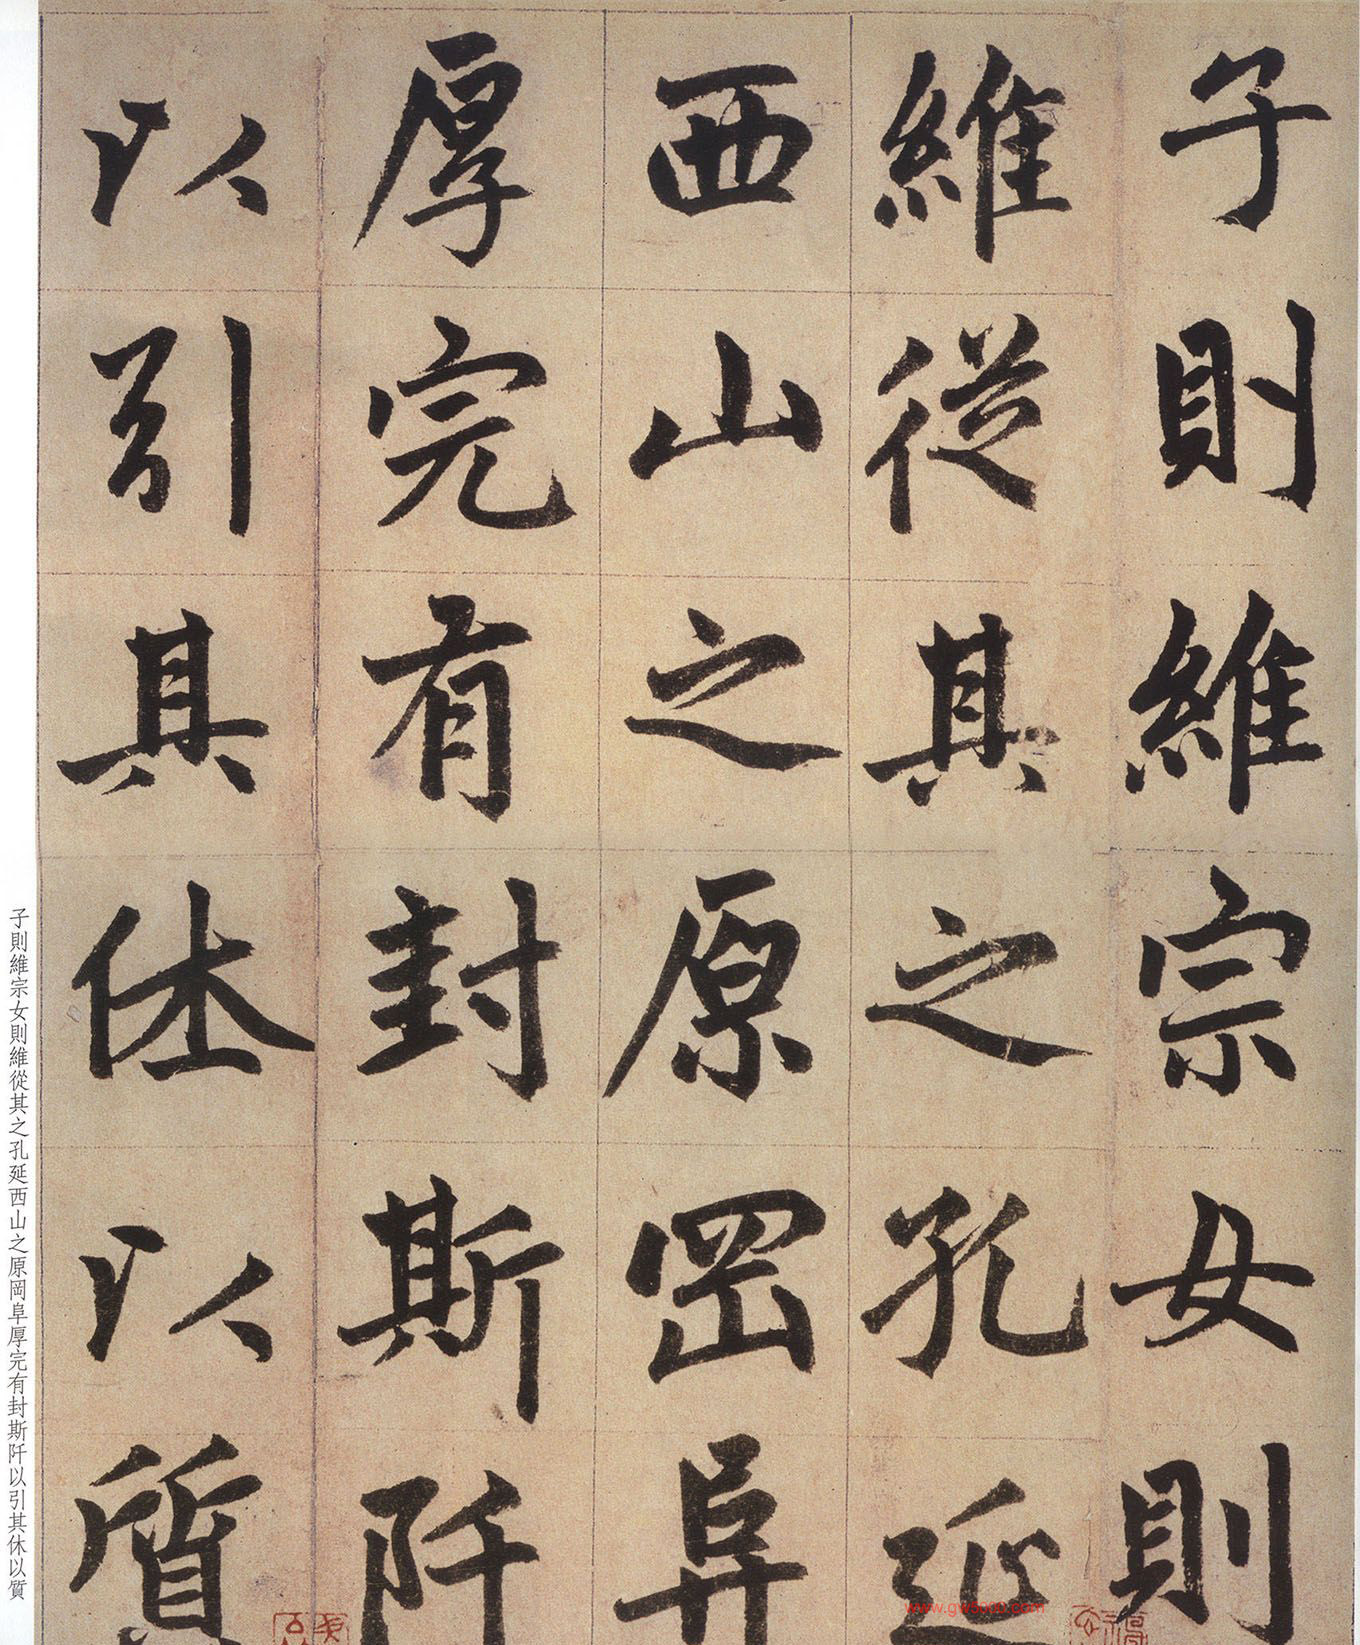 子則維宗女則
維從其之孔延
西山之原罡阜
厚完有封斯阡
以引其休以質
子則維宗女則維從其之孔延西山之原岡阜厚完有封斯阡以引其休以質
www.gw5000.com